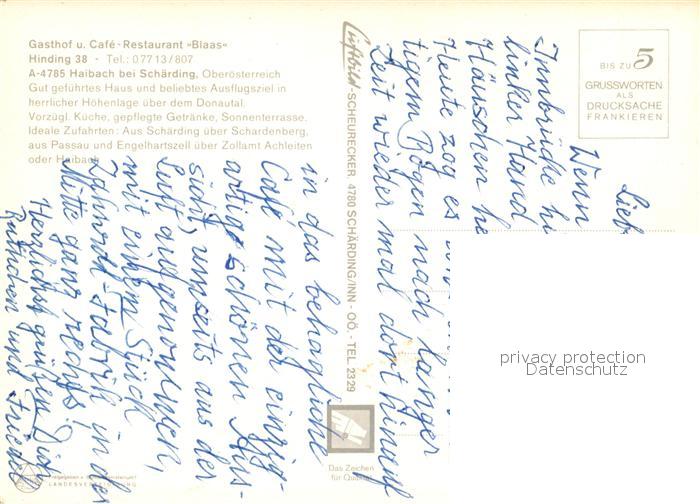 Gasthof u. Café-Restaurant »Blaas«
Hinding 38 - Tel.: 07713/807
A-4785 Haibach bei Schärding, Oberösterreich
Gut geführtes Haus und beliebtes Ausflugsziel in
herrlicher Höhenlage über dem Donautal.
Vorzügl. Küche, gepflegte Getränke, Sonnenterrasse.
Ideale Zufahrten: Aus Schärding über Schardenberg,
aus Passau und Engelhartszell über Zollamt Achleiten
oder Haibach
Luftbild-SCHEURECKER 4780 SCHÄRDING/INN - OÖ. - TEL 2329
BIS ZU 5
GRUSSWORTEN
ALS
DRUCKSACHE
FRANKIEREN
Wenn
Innbrücke
linker Hand
Häuschen
Heute zog es
tigem Bogen nach langer
Zeit wieder mal dort hinauf
in das behagliche
Café mit der einzig-
artige schönen Aus-
sicht, umseits aus der
Luft aufgenommen,
mit einem Stück
Zahnrad-Fabrik in der
Mitte ganz rechts!
Herzlichst grüßen Dich
und
privacy protection
Datenschutz
Das Zeichen
für Qualität